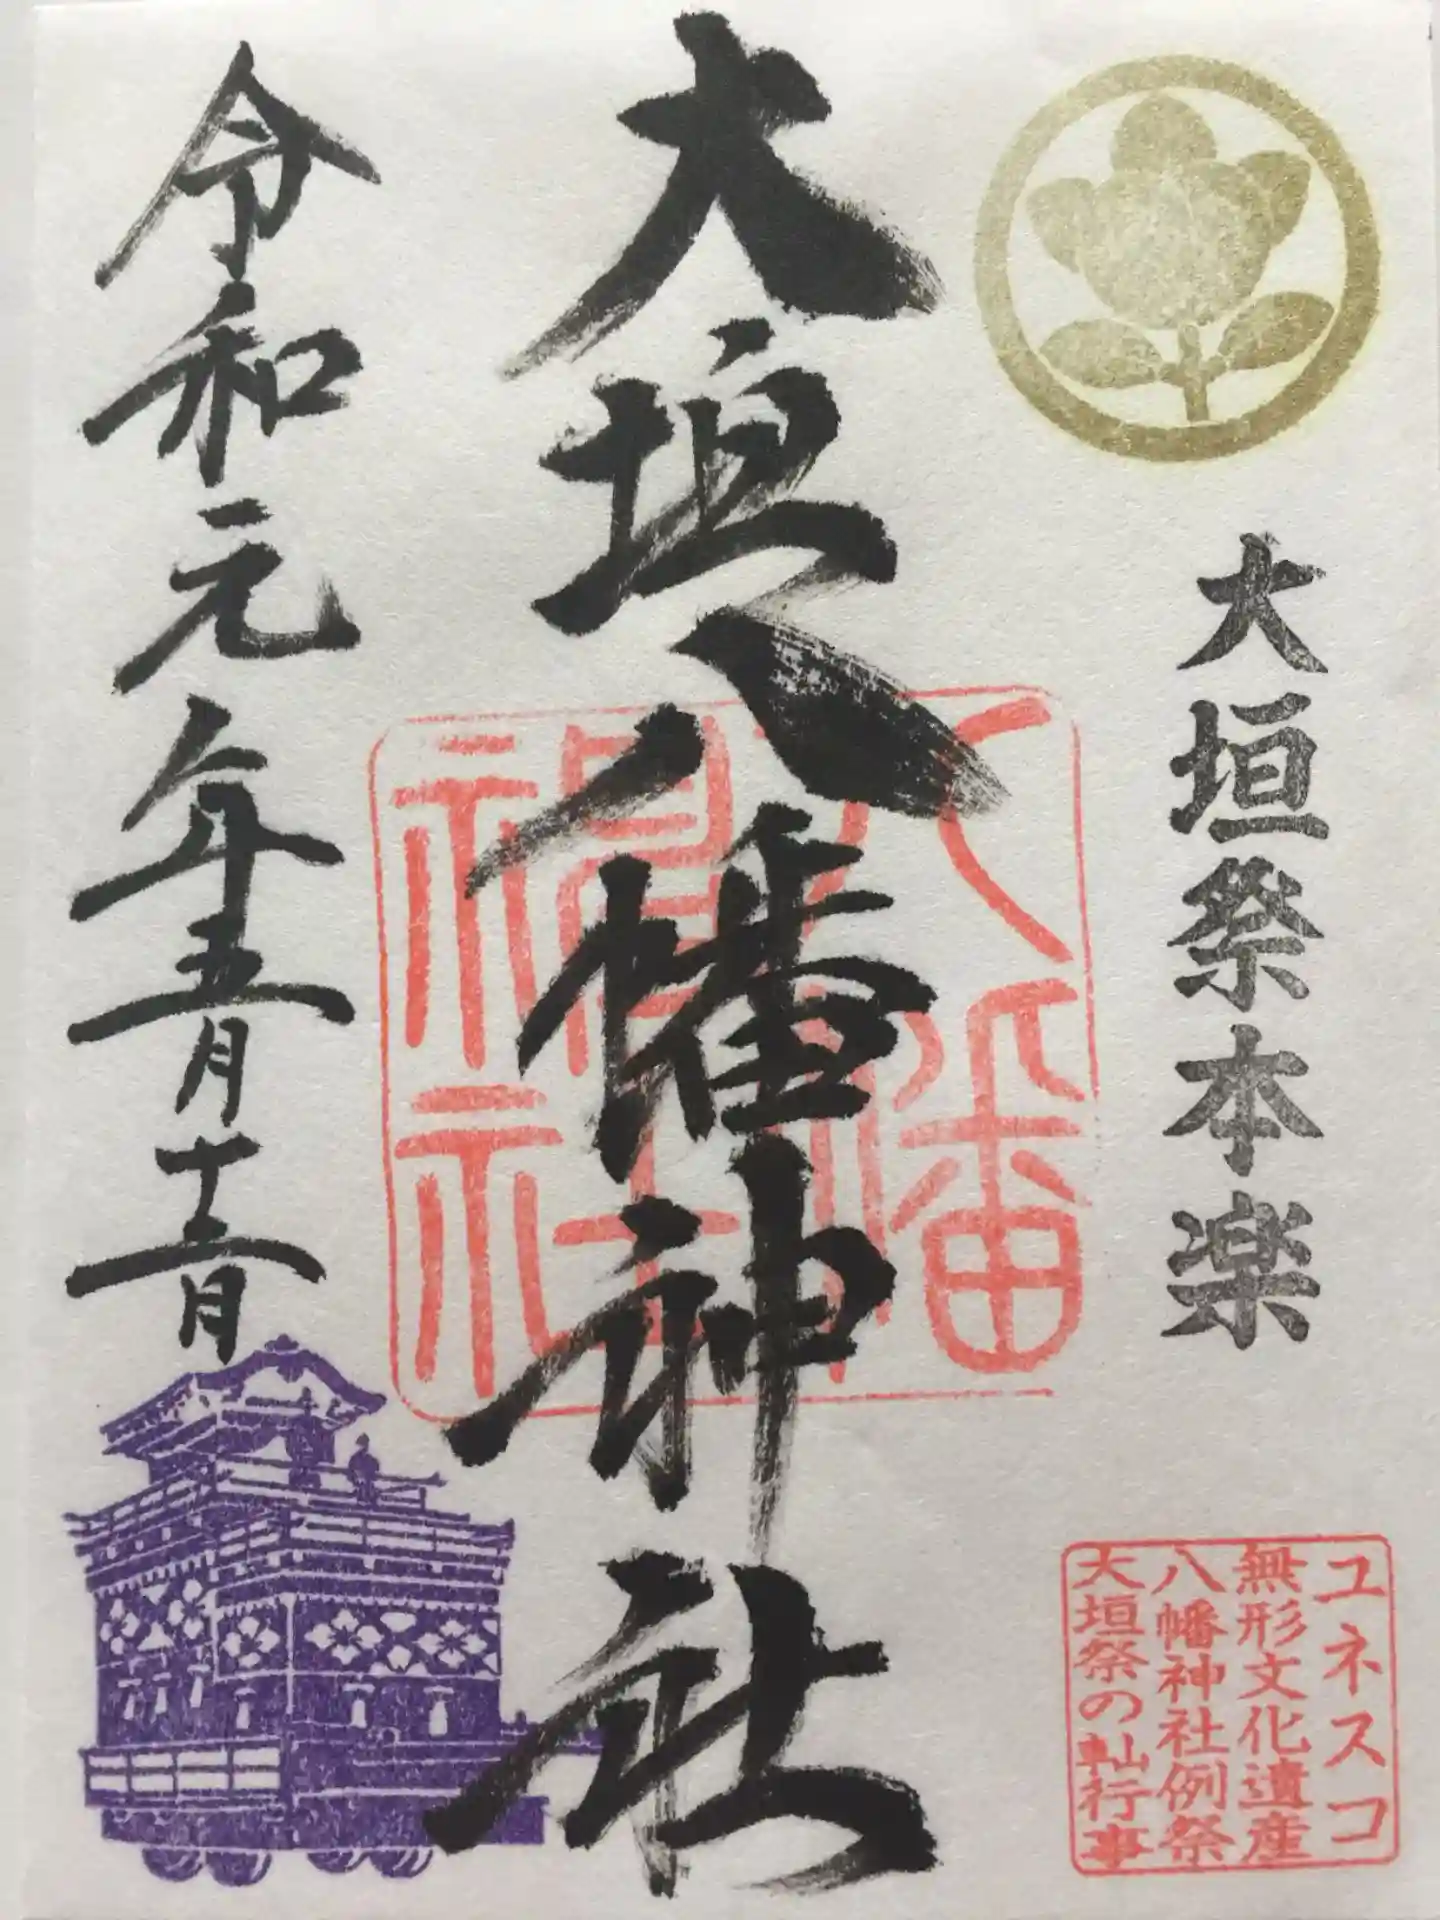 大垣祭本楽
ユネスコ
無形文化遺産
八幡神社例祭
大垣祭の軕行事
大垣八幡神社
八幡
神社
令和元年五月十二日